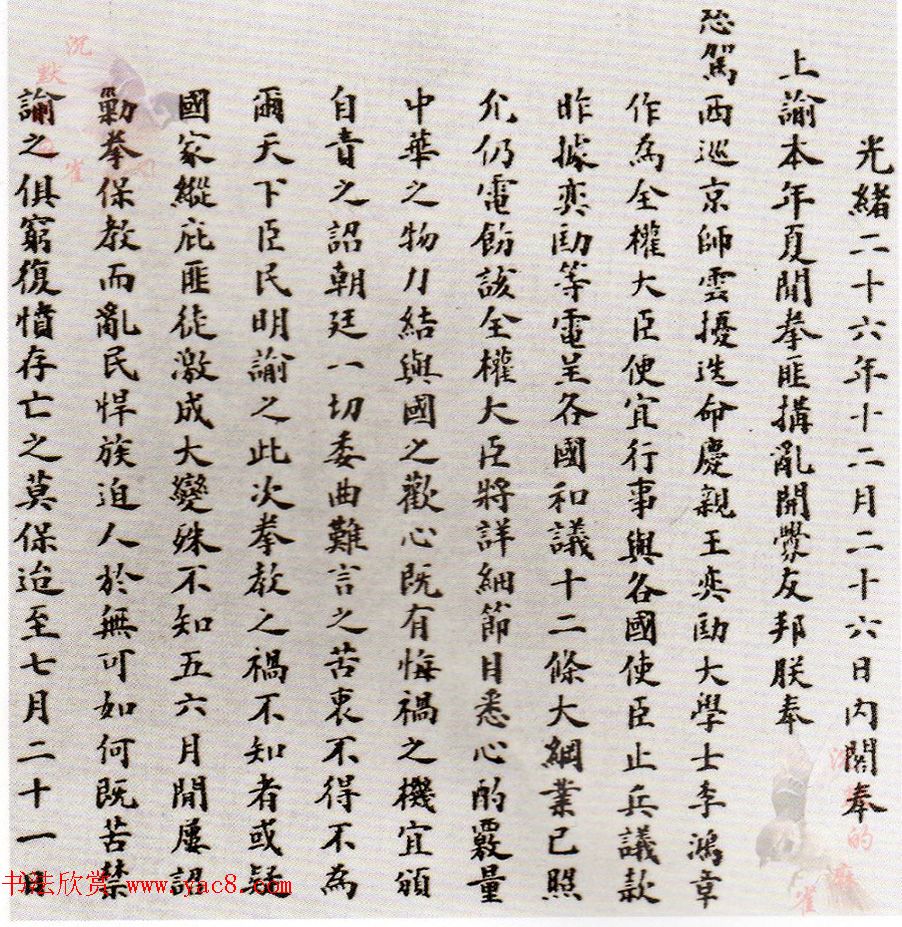 光緒二十六年十二月二十六日內閣奉
上諭本年夏閒拳匪搆亂開釁友邦朕奉
慈駕西巡京師雲擾迭命慶親王奕劻大學士李鴻章
作為全權大臣便宜行事與各國使臣止兵議款
昨據奕劻等電呈各國和議十二條大綱業已照
允仍電飭該全權大臣將詳細節目悉心酌覈量
中華之物力結與國之歡心既有悔禍之機宜頒
自責之詔朝廷一切委曲難言之苦衷不得不為
爾天下臣民明諭之此次拳教之禍不知者或疑
國家縱庇匪徒激成大變殊不知五六月閒屢詔
勦拳保教而亂民悍族迫人於無可如何既苦禁
諭之俱窮復憤存亡之莫保迨至七月二十一日
沉默的麻雀
书法欣赏 www.yac8.com